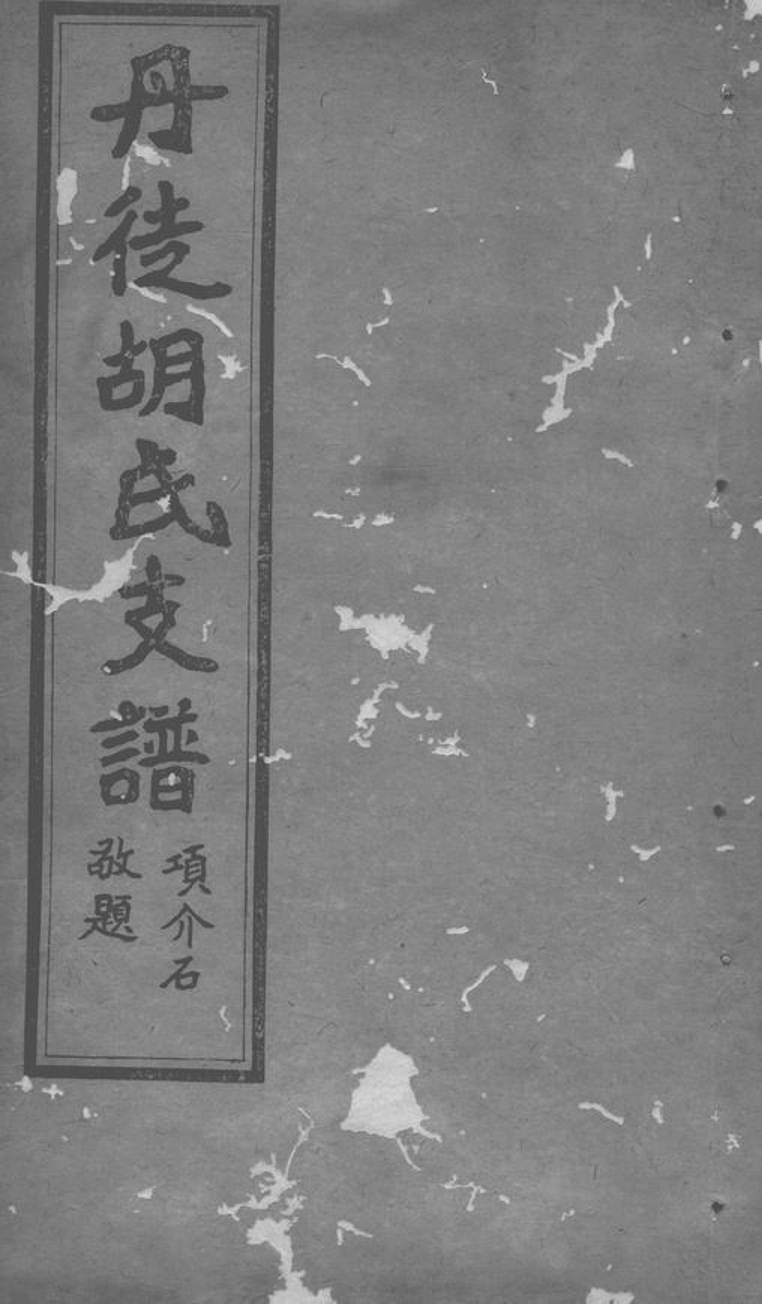 丹徒胡氏支譜
項介石
敬題